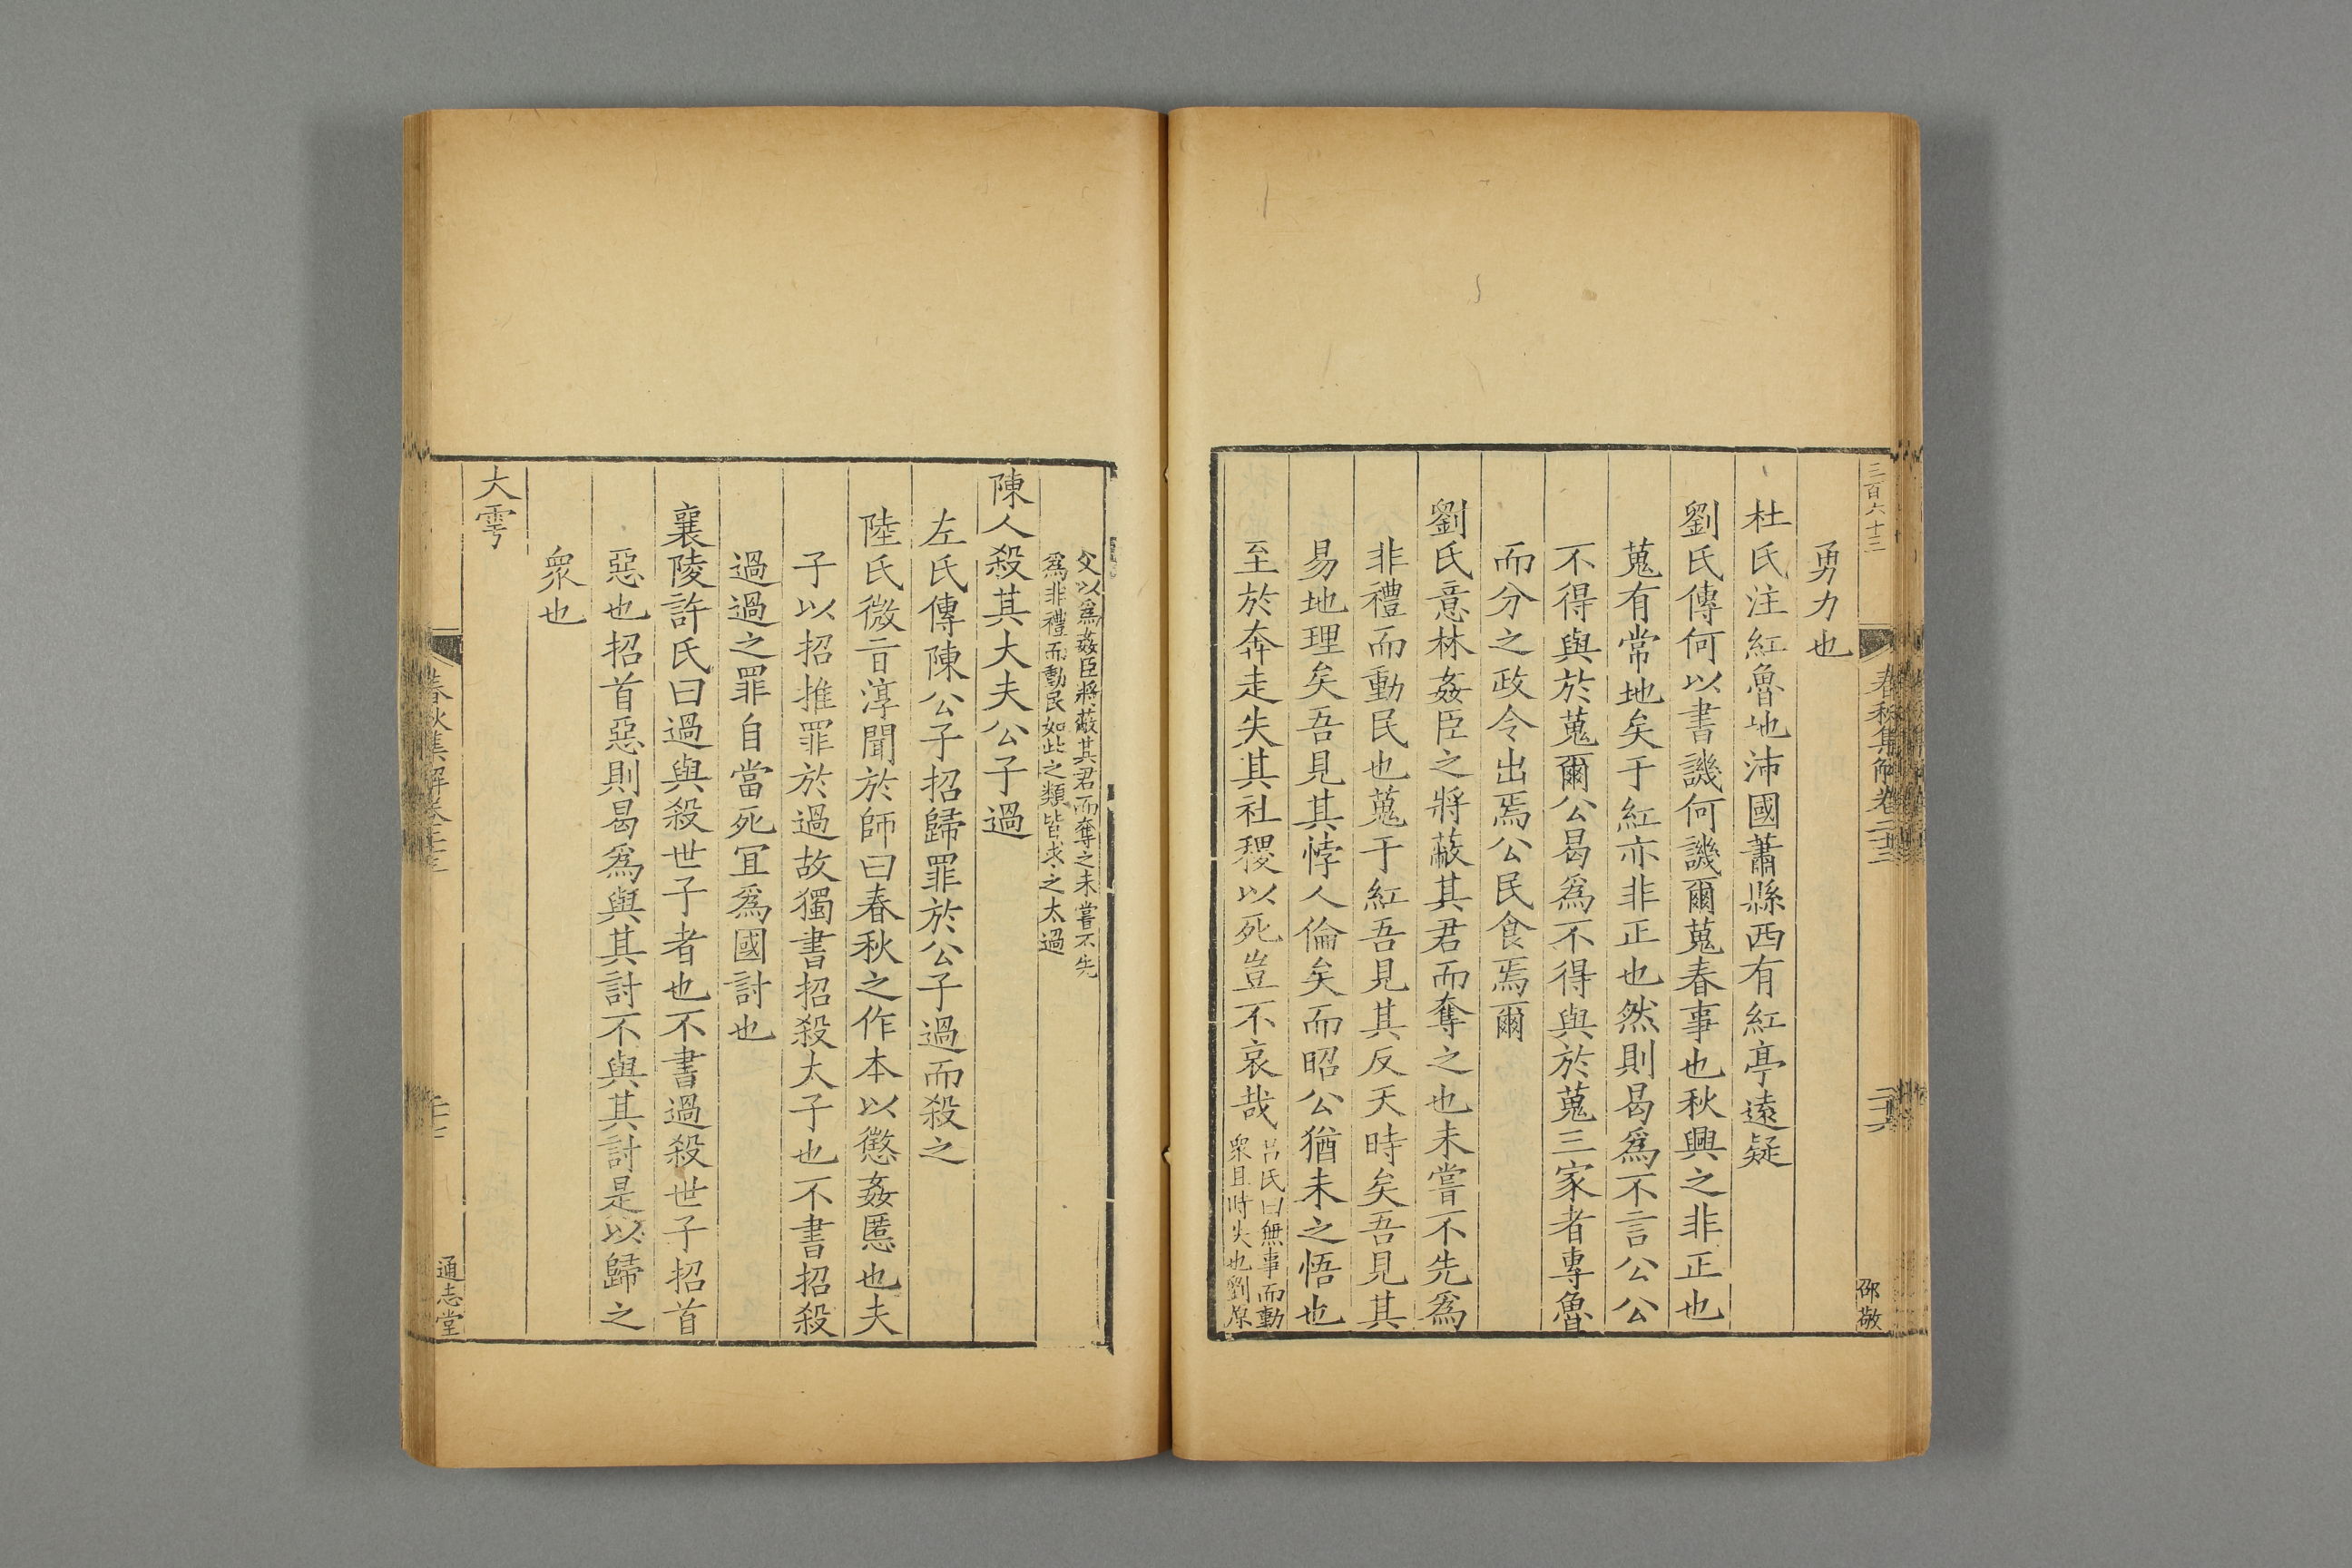 三百六十三
春秋集解卷二十三
二十六
邵敬
勇力也
杜氏注紅魯地沛國蕭縣西有紅亭遠疑
劉氏傳何以書譏何譏爾蒐春事也秋興之非正也
蒐有常地矣于紅亦非正也然則曷爲不言公公
不得與於蒐爾公曷爲不得與於蒐三家者專魯
而分之政令出焉公民食焉爾
劉氏意林姦臣之將蔽其君而奪之也未嘗不先爲
非禮而動民也蒐于紅吾見其反天時矣吾見其
易地理矣吾見其悖人倫矣而昭公猶未之悟也
至於奔走失其社稷以死豈不哀哉
呂氏曰無事而動
衆且時失也劉原
父以爲姦臣將蔽其君而奪之未嘗不先
爲非禮而動民如此之類皆求之太過
陳人殺其大夫公子過
左氏傳陳公子招歸罪於公子過而殺之
陸氏微旨淳聞於師曰春秋之作本以懲姦慝也夫
子以招推罪於過故獨書招殺太子也不書招殺
過過之罪自當死冝爲國討也
襄陵許氏曰過與殺世子者也不書過殺世子招首
惡也招首惡則曷爲與其討不與其討是以歸之
衆也
大雩
春秋集解卷二十三
通志堂